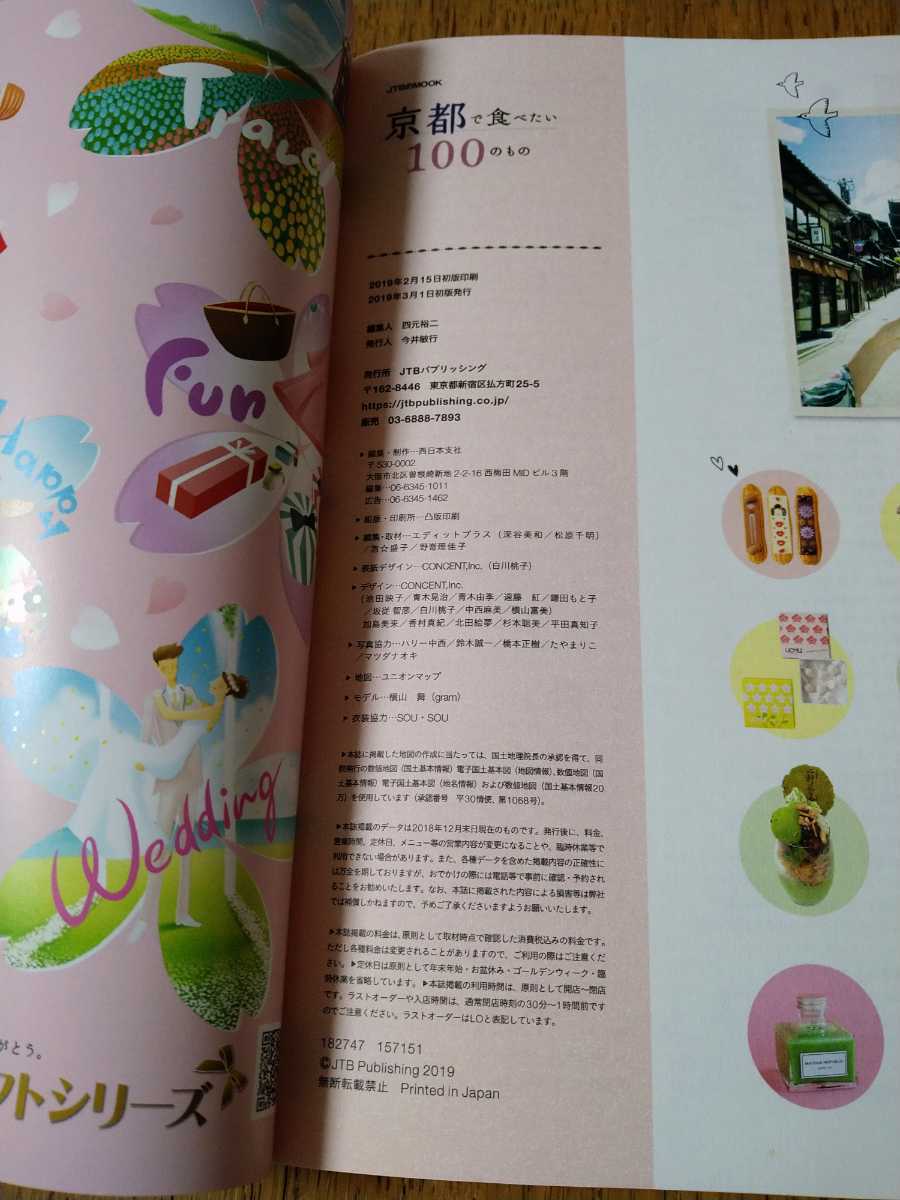 Travel
Fun
Happy
Wedding
がとう。
フトシリーズ
JTBのMOOK
京都で食べたい
100のもの
2019年2月15日初版印刷
2019年3月1日初版発行
編集人 四元裕二
発行人 今井敏行
発行所 JTBパブリッシング
〒162-8446 東京都新宿区払方町25-5
https://jtbpublishing.co.jp/
販売 03-6888-7893
▶編集・制作…西日本支社
〒530-0002
大阪市北区曽根崎新地2-2-16 西梅田MIDビル3階
編集…06-6345-1011
広告…06-6345-1462
▶組版・印刷所…凸版印刷
▶編集・取材…エディットプラス（深谷美和／松原千明）
／西☆盛子／野嵜理佳子
▶表紙デザイン…CONCENT,Inc.（白川桃子）
▶デザイン…CONCENT,Inc.
（池田映子／青木晃治／青木由季／遠藤 紅／鎌田もと子
／坂従 智彦／白川桃子／中西麻美／横山富美）
加島美来／香村真紀／北田絵夢／杉本聡美／平田真知子
▶写真協力…ハリー中西／鈴木誠一／橋本正樹／たやまりこ
／マツダナオキ
▶地図…ユニオンマップ
▶モデル…横山 舞（gram）
▶衣装協力…SOU・SOU
▶本誌に掲載した地図の作成に当たっては、国土地理院長の承認を得て、同
院発行の数値地図（国土基本情報）電子国土基本図（地図情報）、数値地図（国
土基本情報）電子国土基本図（地名情報）および数値地図（国土基本情報20
万）を使用しています（承認番号 平30情使、第1068号）。
▶本誌掲載のデータは2018年12月末日現在のものです。発行後に、料金、
営業時間、定休日、メニュー等の営業内容が変更になることや、臨時休業等で
利用できない場合があります。また、各種データを含めた掲載内容の正確性に
は万全を期しておりますが、おでかけの際には電話等で事前に確認・予約され
ることをお勧めいたします。なお、本誌に掲載された内容による損害等は弊社
では補償しかねますので、予めご了承くださいますようお願いいたします。
▶本誌掲載の料金は、原則として取材時点で確認した消費税込みの料金です。
ただし各種料金は変更されることがありますので、ご利用の際はご注意くださ
い。▶定休日は原則として年末年始・お盆休み・ゴールデンウィーク・臨
時休業を省略しています。▶本誌掲載の利用時間は、原則として開店〜閉店
です。ラストオーダーや入店時間は、通常閉店時刻の30分〜1時間前です
のでご注意ください。ラストオーダーはLOと表記しています。
182747 157151
©JTB Publishing 2019
無断転載禁止 Printed in Japan
UCHU